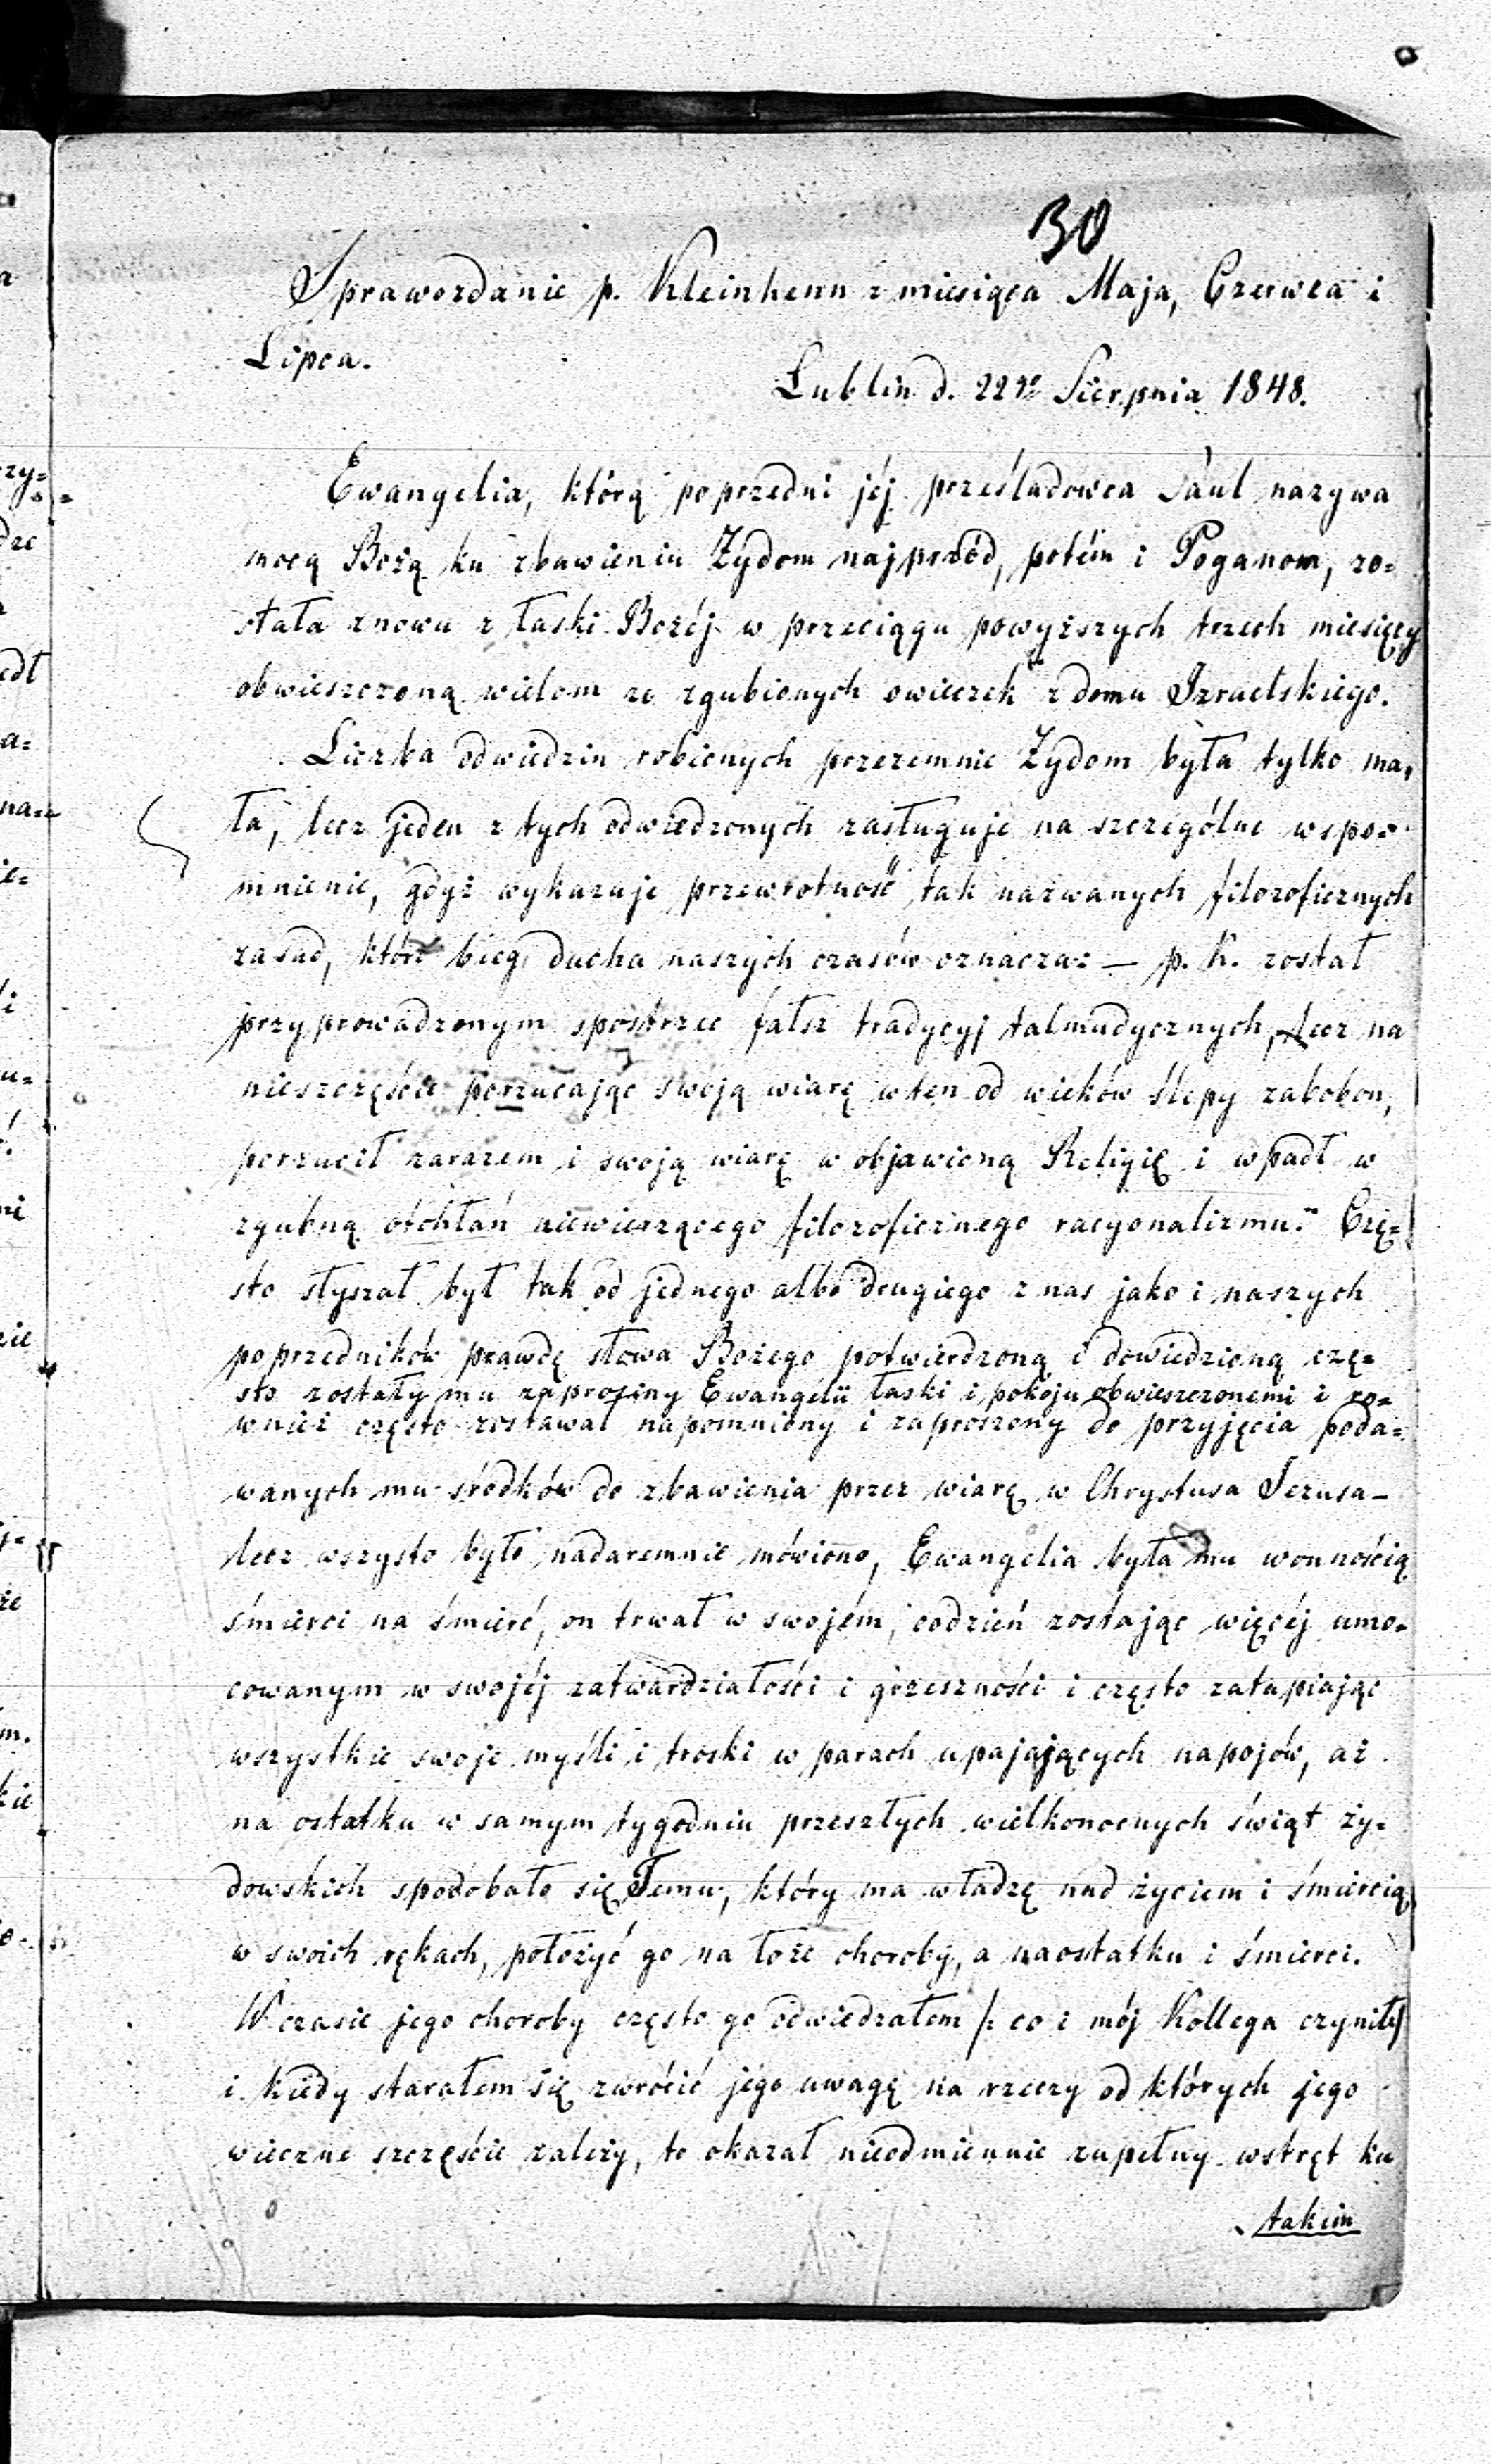 30
Sprawozdanie p. Kleinhenn z miesiąca Maja, Czerwca i
Lipca.
Lublin d. 22go Sierpnia 1848.
Ewangelia, którą poprzedni jéj prześladowca Saul nazywa
mocą Bożą ku zbawieniu Żydom najprzód, potém i Poganom, zo=
stała znowu z łaski Bożéj w przeciągu powyższych trzech miesięcy
obwieszczoną wielom ze zgubionych owieczek z domu Izraelskiego.
Liczba odwiedzin robionych przezemnie Żydom była tylko ma,
ła, lecz jeden z tych odwiedzonych zasługuje na szczególne wspo=
mnienie, gdyż wykazuje przewrotność tak nazwanych filozoficznych
zasad, które bieg ducha naszych czasów oznacza: — p. K. został
przyprowadzonym spostrzec fałsz tradycyj talmudycznych, lecz na
nieszczęście porzucając swoją wiarę w ten od wieków ślepy zabobon,
porzucił zarazem i swoją wiarę w objawioną Religię i wpadł w
zgubną otchłań niewierzącego filozoficznego racyonalizmu. Czę=
sto słyszał był tak od jednego albo drugiego z nas jako i naszych
poprzedników prawdę słowa Bożego potwierdzoną i dowiedzioną czę=
sto zostały mu zaprosiny Ewangelii łaski i pokoju obwieszczonemi i ro=
wnież często zostawał napomniony i zaproszony do przyjęcia poda=
wanych mu śródków do zbawienia przez wiarę w Chrystusa Jezusa—
lecz wszysto było nadaremnie mówiono, Ewangelia była mu wonnością
śmierci na śmierć, on trwał w swojém, codzień zostając więcéj umo=
cowanym w swojéj zatwardziałości i grzeszności i często zatapiając
wszystkie swoje myśli i troski w parach upajających napojów, aż
na ostatku w samym tygodniu przeszłych wielkonocnych świąt ży=
dowskich spodobało się Temu, który ma władzę nad życiem i śmiercią
w swoich rękach, położyć go na łoże choroby, a naostatku i śmierci.
W czasie jego choroby często go odwiedzałem /: co i mój Kollega czynił:/
i kiedy starałem się zwrócić jego uwagę na rzeczy od których jego
wieczne szczęście zależy, to okazał nieodmiennie zupełny wstręt ku
takim